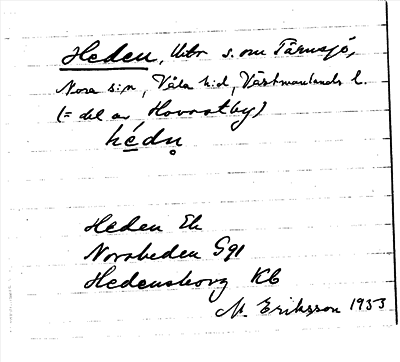 Heden, Utr s. om Tärnsjö,
Nora s:n, Våla h:d, Västmanlands l.
(= del av Hovrastby)
hédn̥
Heden Ek
Norrheden Gql
Hedensborg KB
M. Eriksson 1933